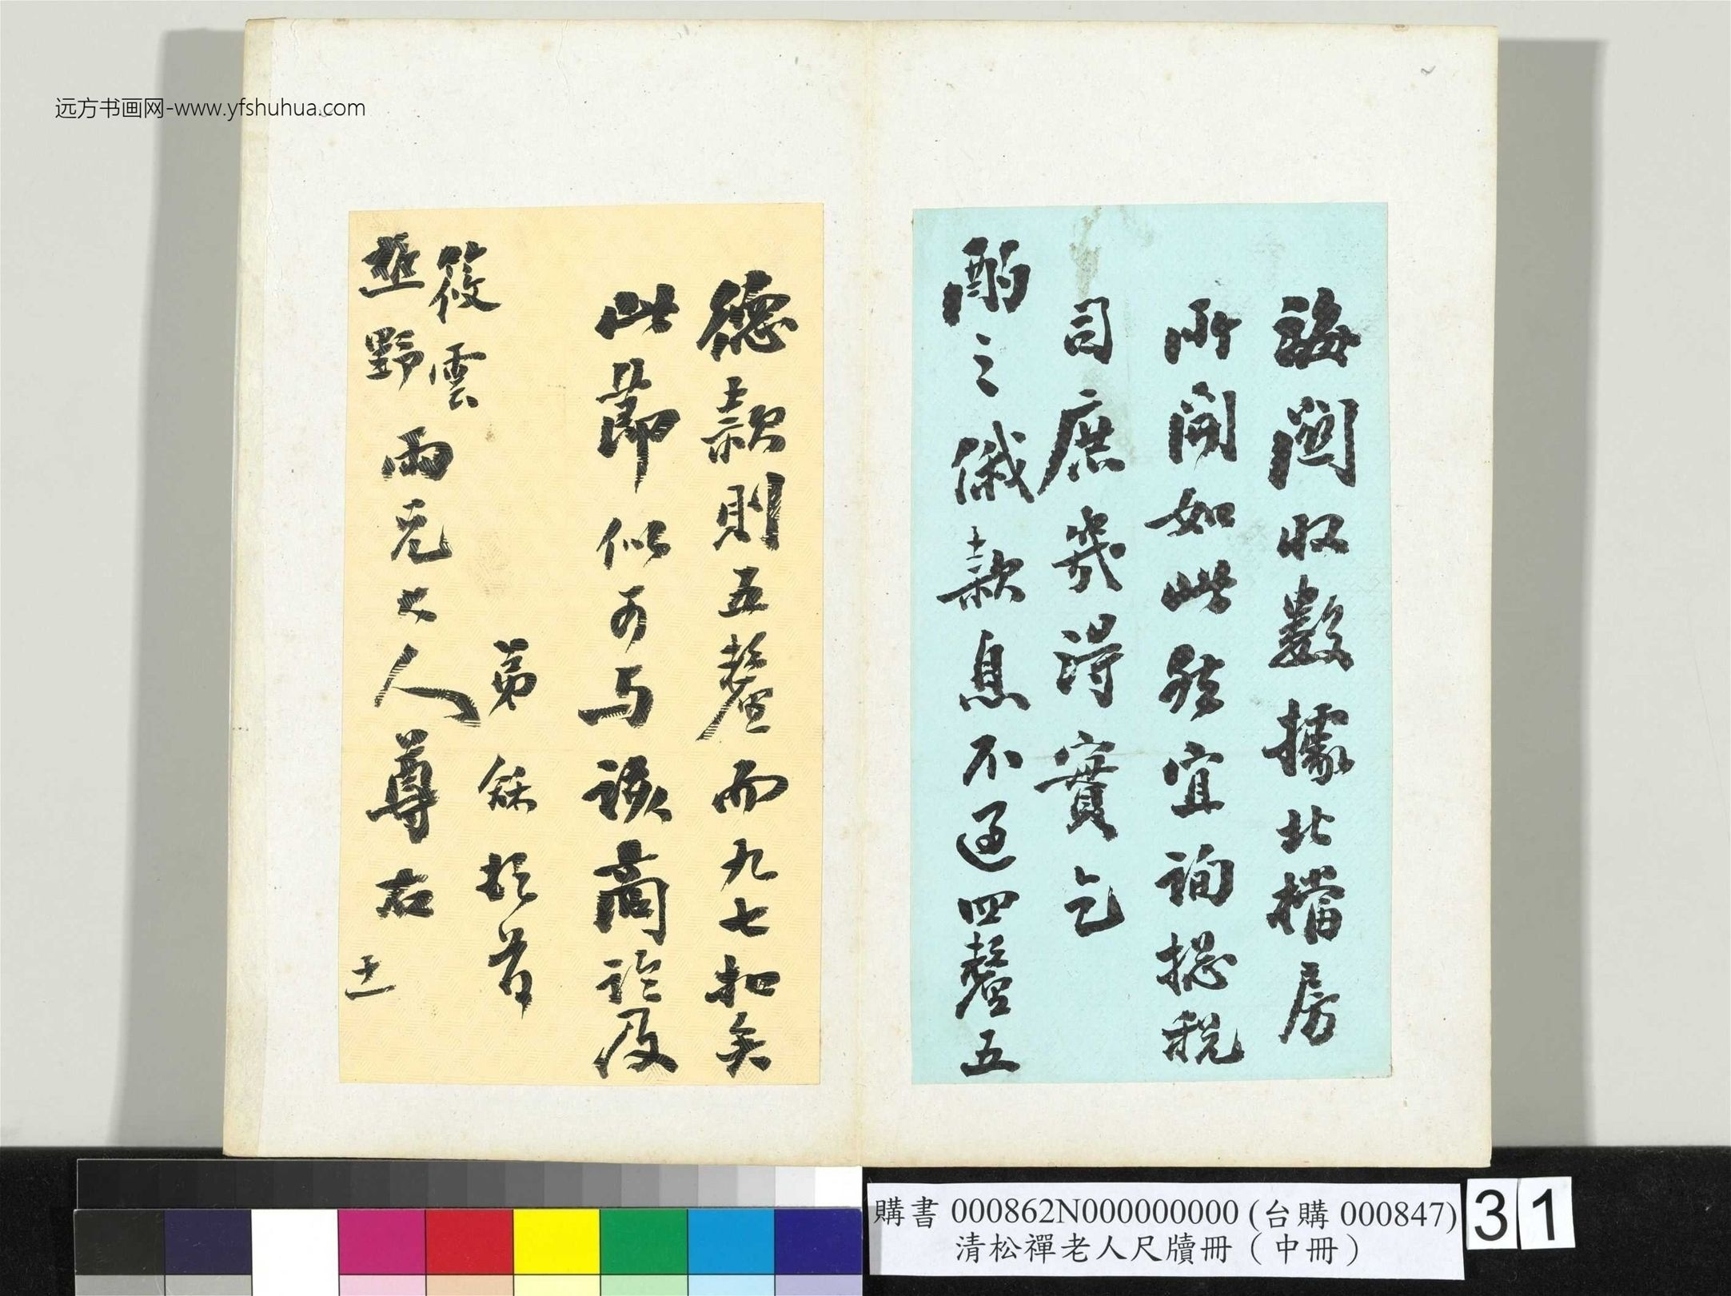 远方书画网-www.yfshuhua.com
海關收數據北檔房
所開如此然宜詢總税
司庶幾得實乞
酌之俄款息不過四釐五
德款則五釐而九七扣矣
此節似可与該商論及
弟龢頓首
筱雲
樵野
兩兄大人尊右
購書 000862N000000000 (台購 000847)
清松禪老人尺牘冊（中冊）
31